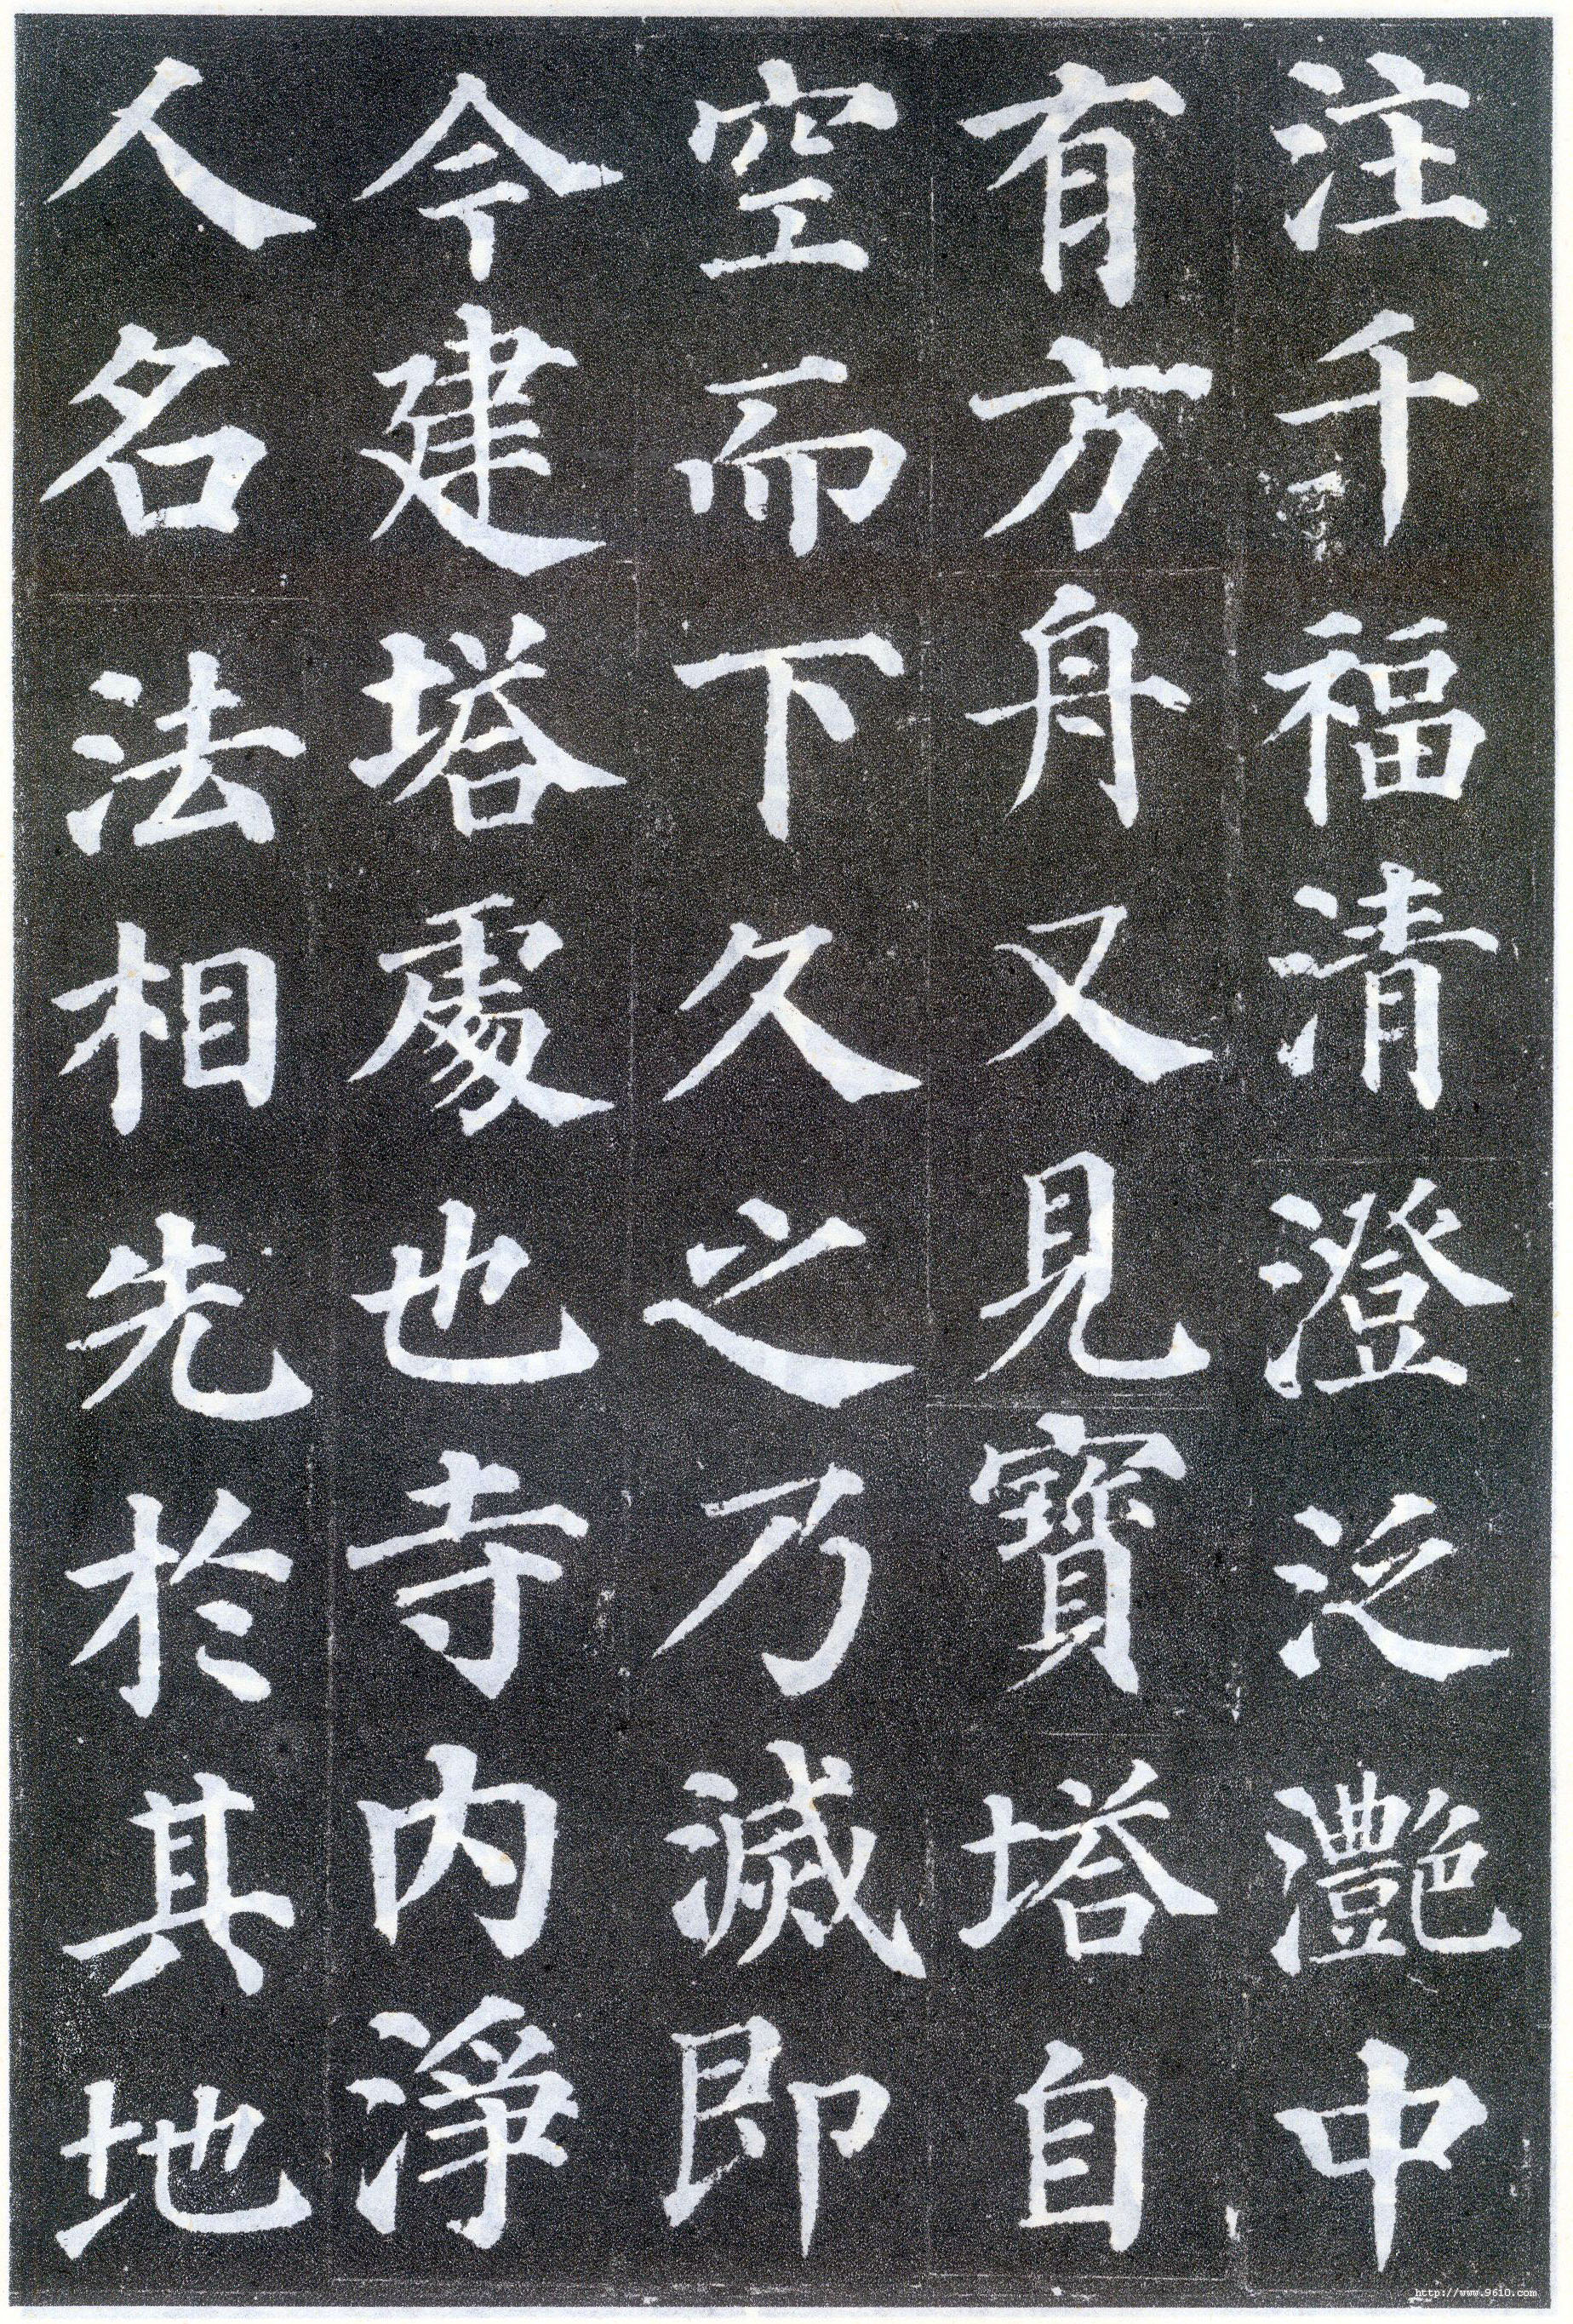 注千福清澄泛灔中
有方舟又見寶塔自
空而下久之乃滅即
今建塔處也寺内淨
人名法相先於其地
http://www.9610.com